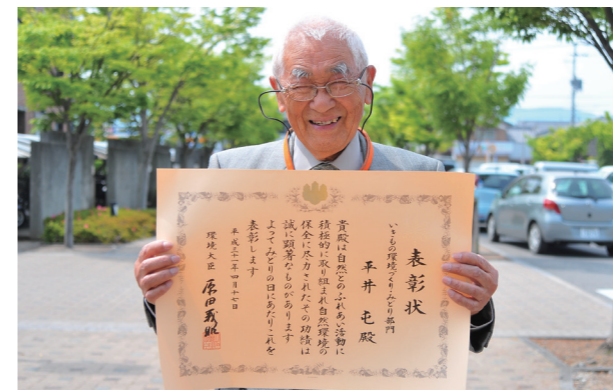 表彰状
いきもの環境づくり・みどり部門
平井 屯 殿
貴殿は自然とのふれあい活動に
積極的に取り組まれ自然環境の
保全に尽力されたその功績は
誠に顕著なものがあります
よってみどりの日にあたりこれを
表彰します
平成三十一年四月十七日
環境大臣 原田義昭